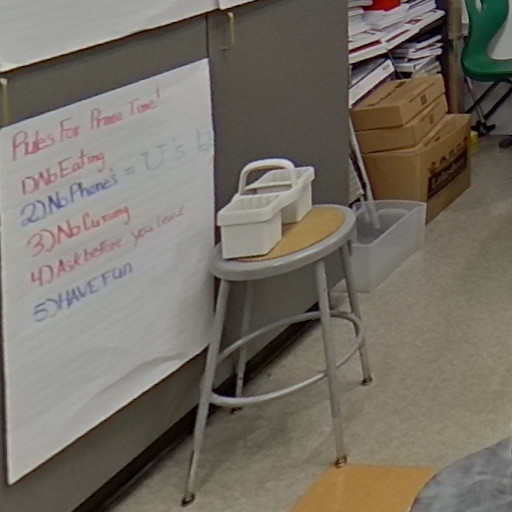 Rules For Promo Time!
1) No Eating
2) No Phone's = U's
3) No Cursing
4) Ask before you leave
5) HAVE FUN